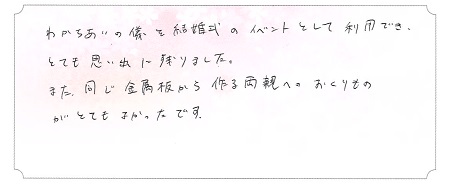 わかちあいの儀を結婚式のイベントとして利用でき、
とても思い出に残りました。
また、同じ金属板から作る両親へのおくりもの
がとてもよかったです。